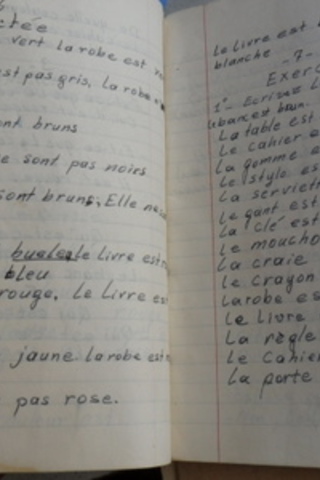 vert la robe est
est pas gris. la robe
ont bruns
e sont pas noirs
sont bruns; Elle
le livre est
bleu
rouge. le livre es
jaune. la robe est
pas rose.
le livre est
blanche
-7-
Exer
1°- Ecrire
La table est
Le cahier e
La gomme e
Le stylo es
La serviett
Le gant est
La clé est
Le moucho
La craie
Le crayon
La robe es
Le livre
La règle
Le cahier
La porte